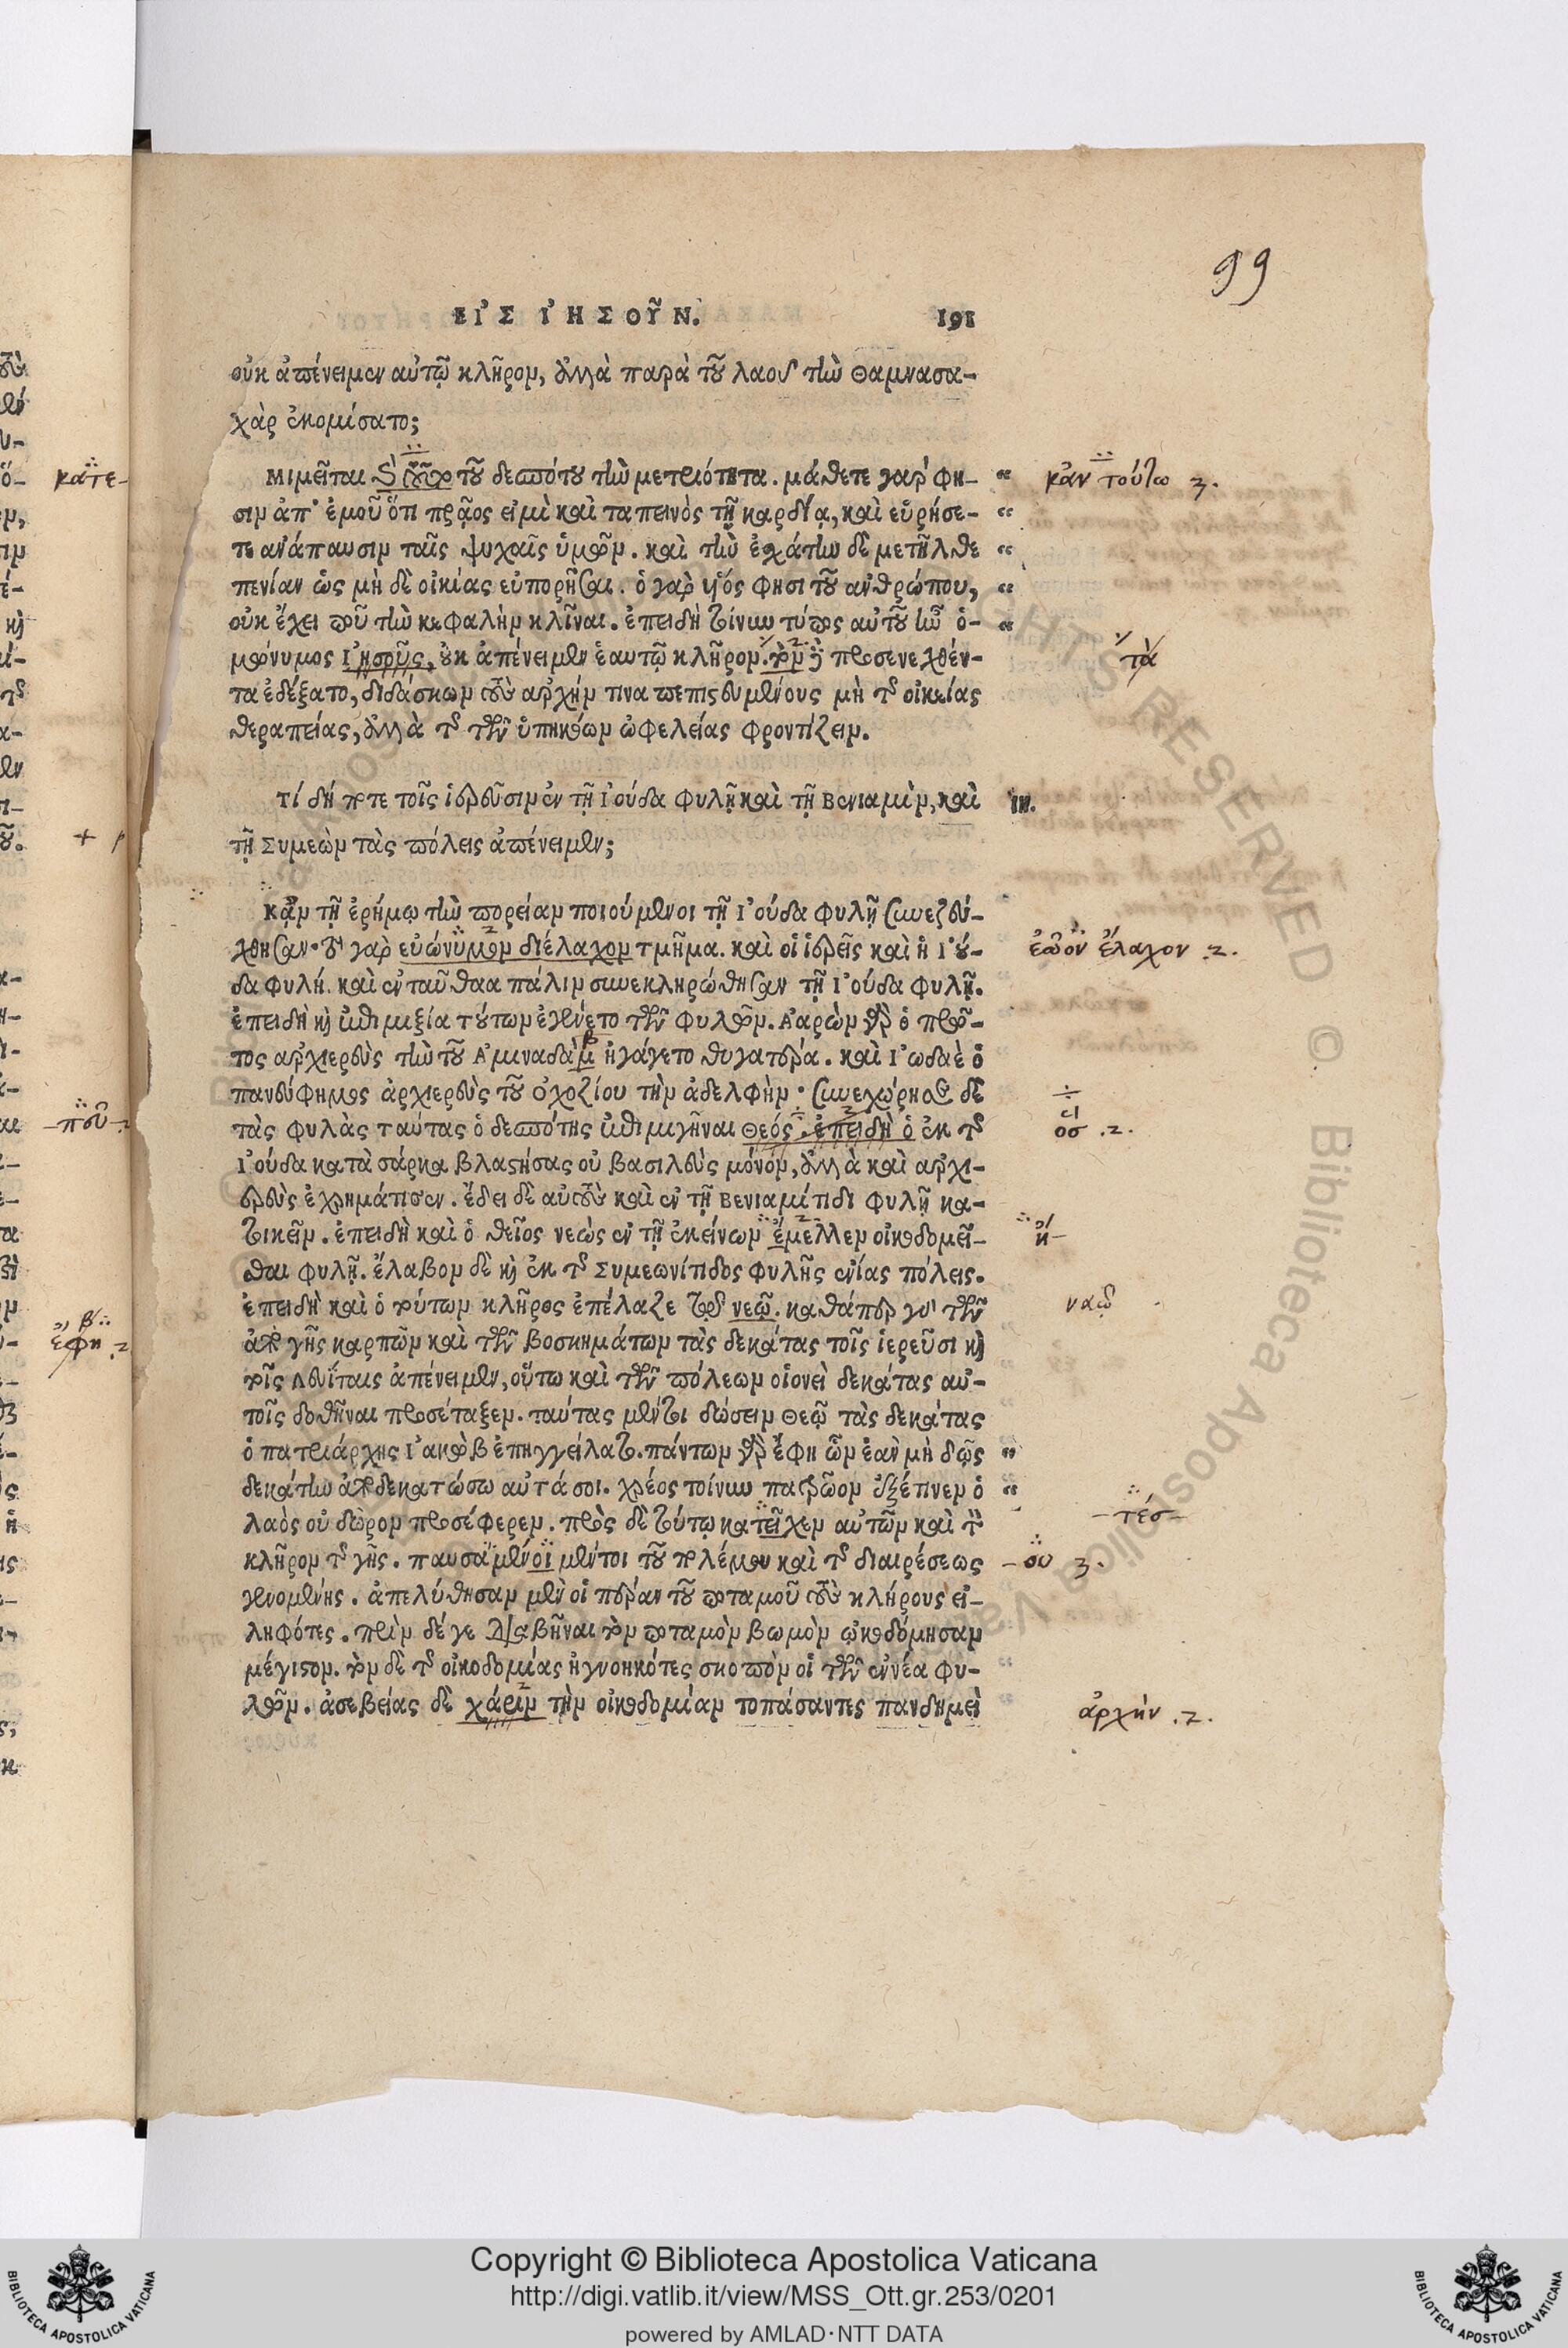 99
ΕἸΣ ἸΗΣΟΥ͂Ν. 191
οὐκ ἀπένειμεν αὐτῷ κλῆρον, ἀλλὰ παρὰ τοῦ λαοῦ τὴν Θαμνασα-
χὰρ ἐκομίσατο;
Μιμεῖται τοῦ δεσπότου τὴν μετριότητα. μάθετε γαρ φη- “ κἀν τούτω 3.
σιν ἀπ' ἐμοῦ ὅτι πρᾷος εἰμὶ καὶ ταπεινὸς τῇ καρδίᾳ, καὶ εὑρήσε- “
τε ἀνάπαυσιν ταῖς ψυχαῖς ὑμῶν. καὶ τὴν ἐσχάτην δὲ μετῆλθε “
πενίαν ὡς μὴ δὲ οἰκίας εὐπορῆσαι. ὁ γὰρ υἱός φησι τοῦ ἀνθρώπου, “
οὐκ ἔχει ποῦ τὴν κεφαλὴν κλῖναι. ἐπειδὴ τοίνυν τύπος αὐτοῦ ἦν ὁ- “
μώνυμος Ἰησοῦς, οὐκ ἀπένειμεν ἑαυτῷ κλῆρον. τὸν δὲ προσενεχθέν- τὰ
τα ἐδέξατο, διδάσκων τοὺς ἀρχήν τινα πεπιστευμένους μὴ τῆς οἰκείας
θεραπείας, ἀλλὰ τῆς τῶν ὑπηκόων ὠφελείας φροντίζειν.
τί δή ποτε τοῖς ἱερεῦσιν ἐν τῇ Ἰούδα φυλῇ καὶ τῇ Βενιαμὶν, καὶ ιη.
τῇ Συμεὼν τὰς πόλεις ἀπένειμεν;
Κἀν τῇ ἐρήμῳ τὴν πορείαν ποιούμενοι τῇ Ἰούδα φυλῇ συνεζεύ-
χθησαν· τὸ γὰρ εὐώνυμον διέλαχον τμῆμα. καὶ οἱ ἱερεῖς καὶ ἡ Ἰού- ἑῶον ἔλαχον .2.
δα φυλή. καὶ ἐνταῦθαα πάλιν συνεκληρώθησαν τῇ Ἰούδα φυλῇ.
ἐπειδὴ καὶ ἐπιμιξία τούτων ἐγένετο τῶν φυλῶν. Ἀαρὼν γὰρ ὁ πρῶ-
τος ἀρχιερεὺς τὴν τοῦ Ἀμιναδὰμ ἠγάγετο θυγατέρα. καὶ Ἰωδαὲ ὁ
πανεύφημος ἀρχιερεὺς τοῦ Ὀχοζίου τὴν ἀδελφὴν· συνεχώρησε δὲ
τὰς φυλὰς ταύτας ὁ δεσπότης ἐπιμιγῆναι Θεός. ἐπειδὴ ὁ ἐκ τῆς οσ .2.
Ἰούδα κατὰ σάρκα βλαστήσας οὐ βασιλεὺς μόνον, ἀλλὰ καὶ ἀρχι-
ερεὺς ἐχρημάτισεν. ἔδει δὲ αὐτοὺς καὶ ἐν τῇ Βενιαμίτιδι φυλῇ κα-
τοικεῖν. ἐπειδὴ καὶ ὁ θεῖος νεὼς ἐν τῇ ἐκείνων ἔμελλεν οἰκοδομεῖ- ἤ-
σθαι φυλῇ. ἔλαβον δὲ καὶ ἐκ τῆς Συμεωνίτιδος φυλῆς ἐνίας πόλεις.
ἐπειδὴ καὶ ὁ τούτων κλῆρος ἐπέλαζε τῷ νεῷ. καθάπερ γὰρ τῶν ναῷ
ἀπὸ γῆς καρπῶν καὶ τῶν βοσκημάτων τὰς δεκάτας τοῖς ἱερεῦσι καὶ
τοῖς Λευΐταις ἀπένειμεν, οὕτω καὶ τῶν πόλεων οἱονεὶ δεκάτας αὐ-
τοῖς δοθῆναι προσέταξεν. ταύτας μέντοι δώσειν Θεῷ τὰς δεκάτας
ὁ πατριάρχης Ἰακὼβ ἐπηγγείλατο. πάντων γὰρ ἔφη ὧν ἐὰν μὴ δῷς “
δεκάτην ἀποδεκατώσω αὐτά σοι. χρέος τοίνυν πατρῶον ἐξέτινεν ὁ “
λαὸς οὐ δῶρον προσέφερεν. πρὸς δὲ τούτῳ κατεῖχεν αὐτῶν καὶ τὸν -τέσ-
κλῆρον τῆς γῆς. παυσάμενοι μέντοι τοῦ πολέμου καὶ τῆς διαιρέσεως -ου 3.
γενομένης. ἀπελύθησαν μὲν οἱ πέραν τοῦ ποταμοῦ τοὺς κλήρους εἰ-
ληφότες. πρὶν δέ γε διαβῆναι τὸν ποταμὸν βωμὸν ᾠκοδόμησαν
μέγιστον. τὸν δὲ τῆς οἰκοδομίας ἠγνοηκότες σκοπὸν οἱ τῶν ἐννέα φυ-
λῶν. ἀσεβείας δὲ χάριν τὴν οἰκοδομίαν τοπάσαντες πανδημεὶ ἀρχήν .2.
κάτε-
-που-
ἔφη .2
Copyright © Biblioteca Apostolica Vaticana
http://digi.vatlib.it/view/MSS_Ott.gr.253/0201
powered by AMLAD·NTT DATA